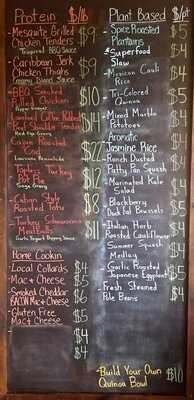 Protein $/lb
-Mesquite Grilled $9
Chicken Tenders
Tropical BBQ Sauce
-Caribbean Jerk $9
Chicken Thighs
Creamy Island Sauce
-BBQ Smoked $10
Pulled Chicken
-Lambord Coffee Rubbed $14
Beef Shoulder Tender
-Cajun Roasted $22
Cod
Louisiana Remoulade
-Tapley Turkey $12
Pot Pie
-Cuban Style $8
Roasted Tofu
-Turkey Schwarma $11
Meatballs
Garlic Yogurt Dipping Sauce
Home Cookin
-Local Collards $4
-Mac & Cheese $5
-Smoked Cheddar $6
BACON Mac & Cheese
-Gluten Free $5
Mac & Cheese
$4
$4
Plant Based $/pt
-Spice Roasted $5
Plantains
-Superfood $4
Slaw
-Mexican Cauli $4
Rice
-Tri-Colored $5
Quinoa
-Mixed Marble $4
Potatoes
-Aromatic $4
Jasmine Rice
-Ranch Dusted $4
Patty Pan Squash
-Marinated Kale $4
Salad
-Blackberry $5
Duck Fat Brussels
-Italian Herb $4
Roasted Cauliflower
-Summer Squash $4
Medley
-Garlic Roasted $5
Japanese Eggplant
-Fresh Steamed $4
Pole Beans
-Build Your Own $10
Quinoa Bowl